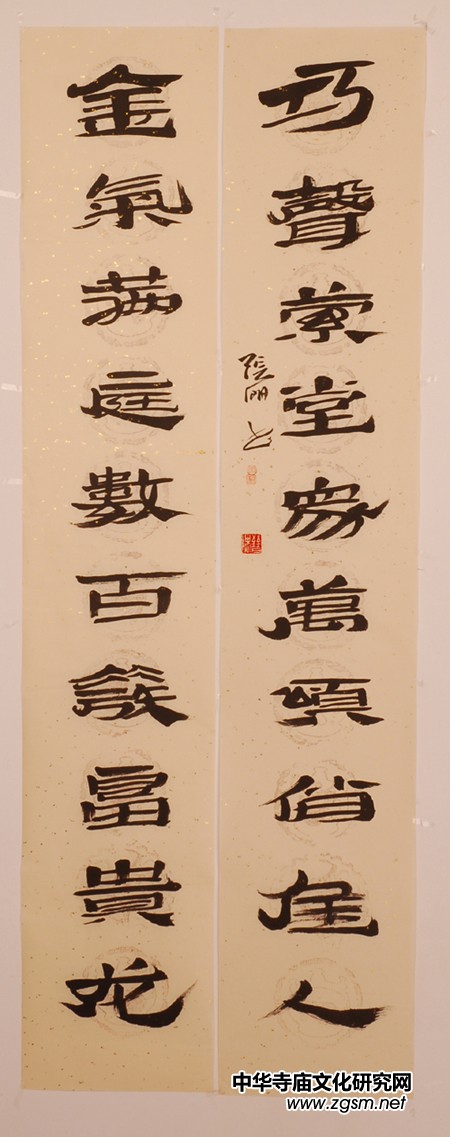 巧聲萦堂眾萬頌俏佳人
金氣满庭數百簇富貴花
中华寺庙文化研究网
www.zgsm.net